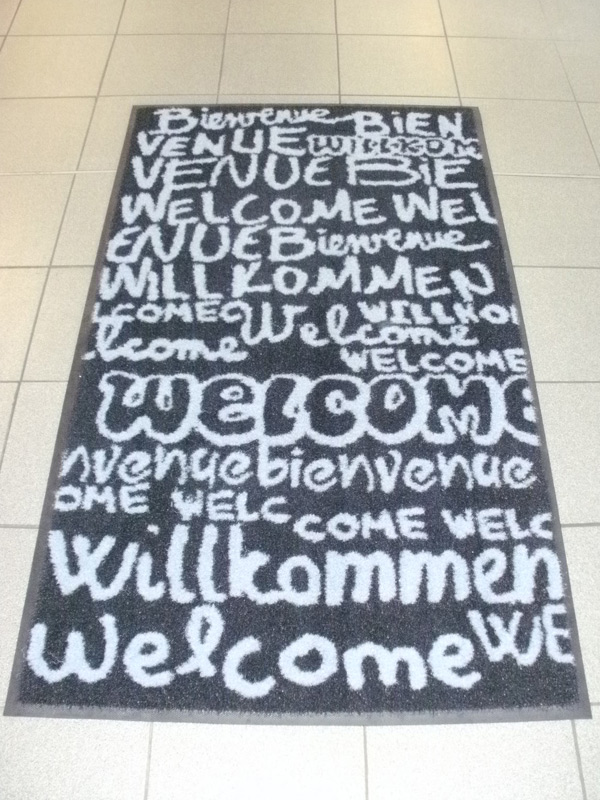 Bienvenue BIEN
VENUE WILLKOM
VENUE BIE
WELCOME WEL
ENUE Bienvenue
WILLKOMMEN
LCOME Welcome WILLKO
lcome WELCOME
WELCOME
nvenue bienvenue
OME WELC COME WELC
Willkommen
Welcome WE